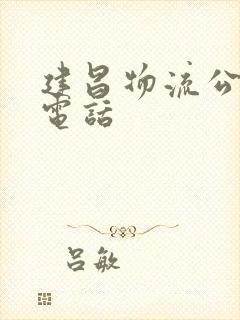 建昌物流公
電話
吕敏